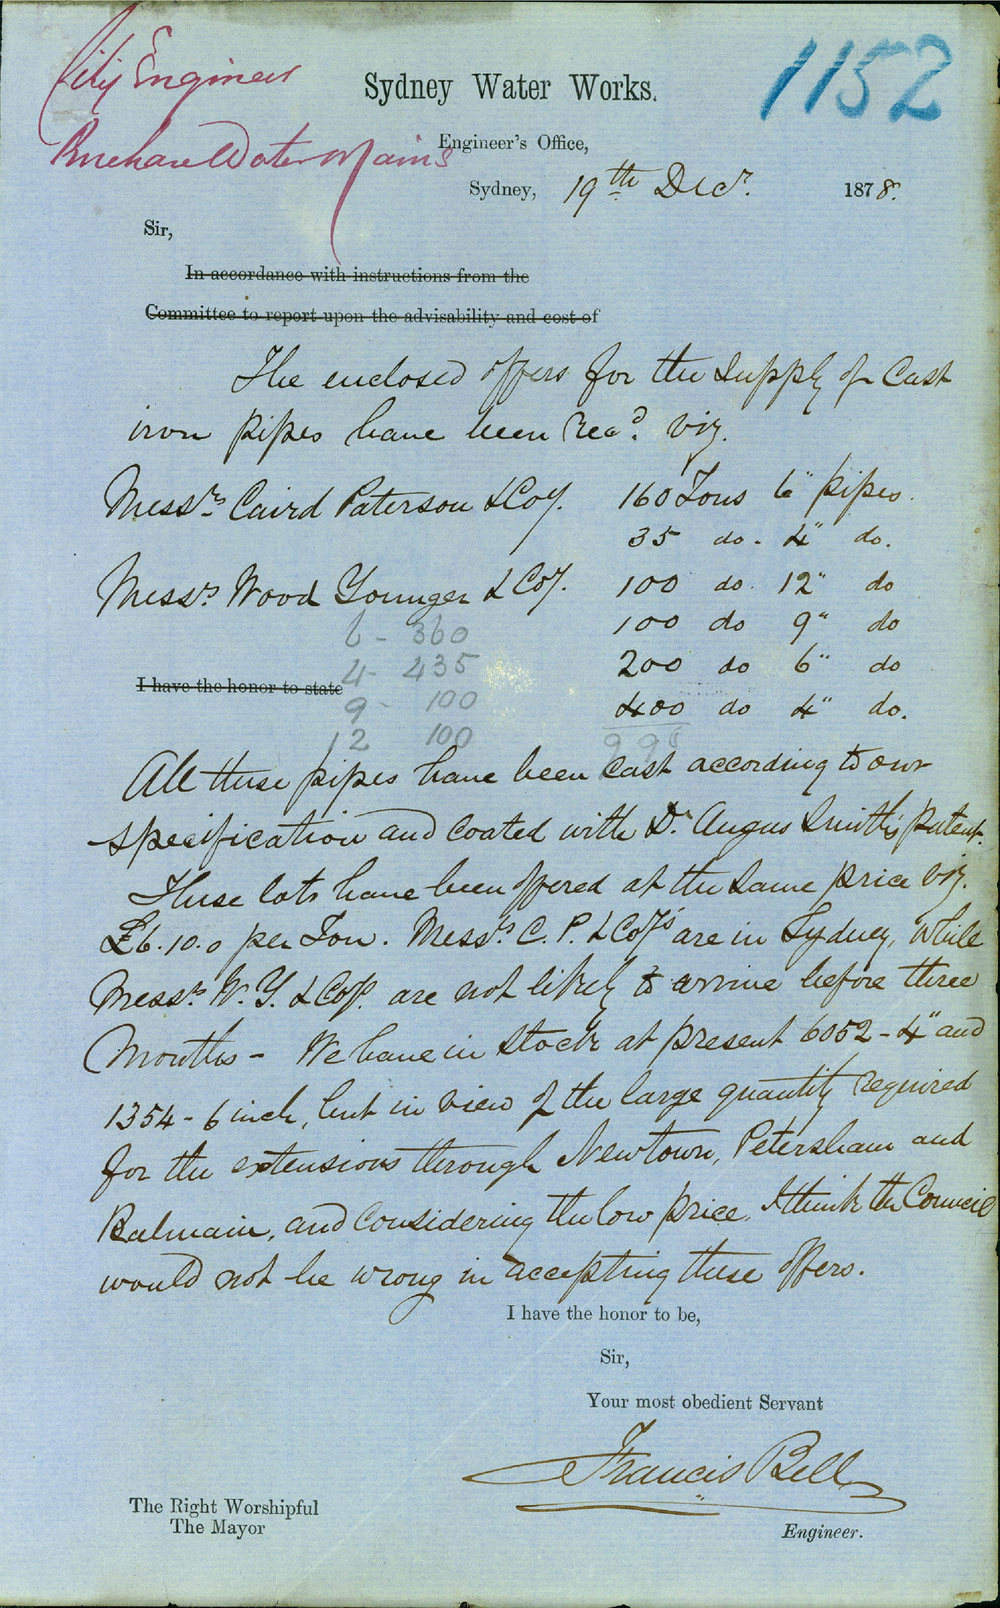 City Engineer
1152
Sydney Water Works.
Purchase Water Mains
Engineer's Office,
Sydney, 19th Decr. 1878.
Sir,
In accordance with instructions from the
Committee to report upon the advisability and cost of
The enclosed offers for the supply of Cast
iron pipes have been recd. viz.
Messrs Caird Paterson & Coy. 160 Tons 6" pipes.
35 do. 4" do.
Messrs. Wood Younger & Coy. 100 do. 12" do
6 - 360
100 do 9" do
4 - 435
200 do 6" do
I have the honor to state
9 - 100
400 do 4" do.
12 100
995
All these pipes have been cast according to our
specification and coated with Dr. Angus Smith's patent.
These lots have been offered at the same price viz.
£6.10.0 per Ton. Messrs C. P. & Coy's are in Sydney, while
Messrs W. Y. & Coys. are not likely to arrive before three
months - We have in stock at present 6052 - 4" and
1354 - 6 inch, but in view of the large quantity required
for the extensions through Newtown, Petersham and
Balmain, and considering the low price, I think the Council
would not be wrong in accepting these offers.
I have the honor to be,
Sir,
Your most obedient Servant
Francis Bell
The Right Worshipful
The Mayor
Engineer.